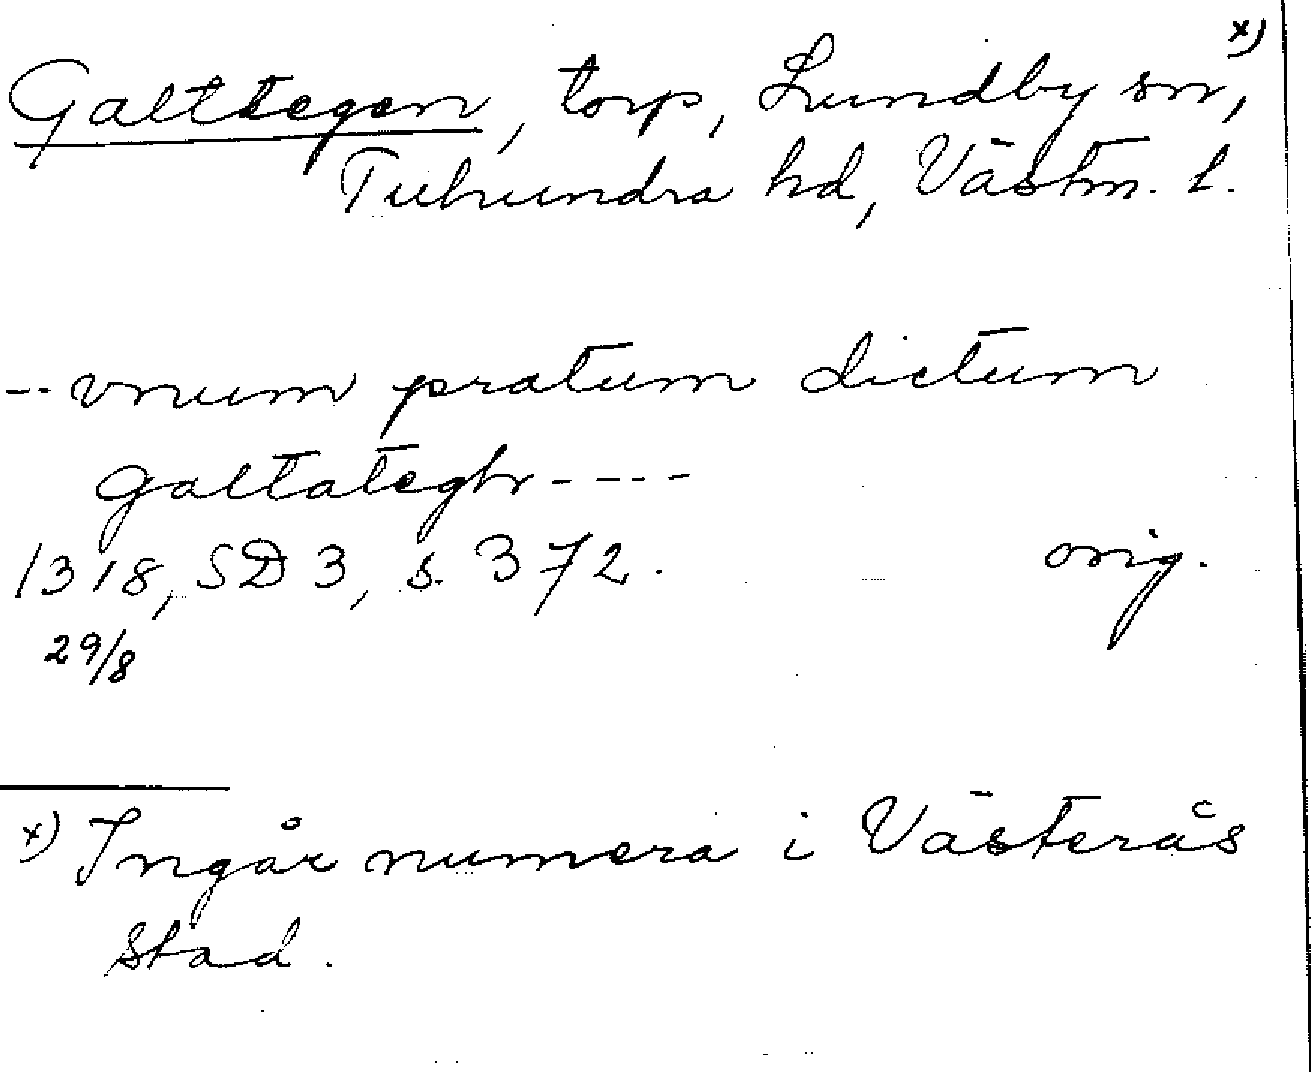 x)
Galttegen, torp, Lundby sn,
Tuhundra hd, Västm. l.
-- vnum pratum dictum
galtateghr ----
1318, SD 3, s. 372. orig.
29/8
x) Ingår numera i Västerås
stad.